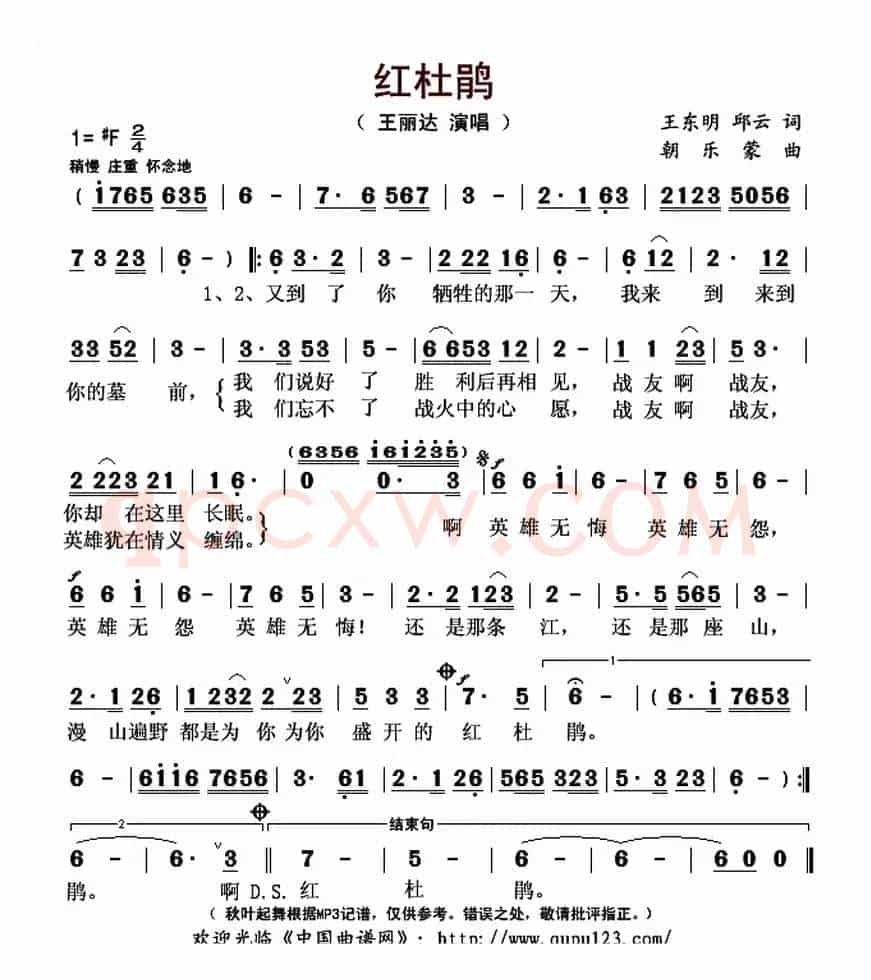 红杜鹃
（ 王丽达 演唱 ）
1= #F 2/4
王东明 邱云 词
稍慢 庄重 怀念地
朝 乐 蒙 曲
( i765 635 | 6 - | 7· 6 567 | 3 - | 2· 1 63 | 2123 5056 |
7 3 23 | 6 - ) ‖: 6 3·2 | 3 - | 2 22 16 | 6 - | 6 12 | 2· 12 |
1、2、又到 了 你 牺牲的那一 天， 我来 到 来到
33 52 | 3 - | 3·3 53 | 5 - | 6 653 12 | 2 - | 1 1 23 | 5 3· |
你的墓 前，
我 们说好 了 胜 利后再相 见， 战友啊 战友，
我 们忘不 了 战火中的心 愿， 战友啊 战友，
(6356 i6i235)
2 223 21 | 1 6· | 0 0· 3 | 6 6 i | 6 - | 7 6 5 | 6 - |
你却 在这里 长眠。
英雄犹在情义 缠绵。
啊 英 雄 无 悔 英 雄 无 怨，
f
6 6 i | 6 - | 7 6 5 | 3 - | 2·2 123 | 2 - | 5·5 565 | 3 - |
英 雄 无 怨 英 雄 无 悔！ 还 是那条 江， 还 是那 座 山，
1
2·1 26 | 1 232 2 23 | 5 3 3 | 7· 5 | 6 - | ( 6·i 7653 |
漫 山遍野 都是为 你为你 盛 开 的 红 杜 鹃。
6 - | 6ii6 7656 | 3· 61 | 2·1 26 | 565 323 | 5·3 23 | 6 - ) :‖
2
结束句
6 - | 6· 3 ‖ 7 - | 5 - | 6 - | 6 - | 6 0 0 ‖
鹃。 啊 D.S. 红 杜 鹃。
（ 秋叶起舞根据MP3记谱，仅供参考。错误之处，敬请批评指正。）
欢迎光临《中国曲谱网》：http://www.qupu123.com/
qpcxw.COM